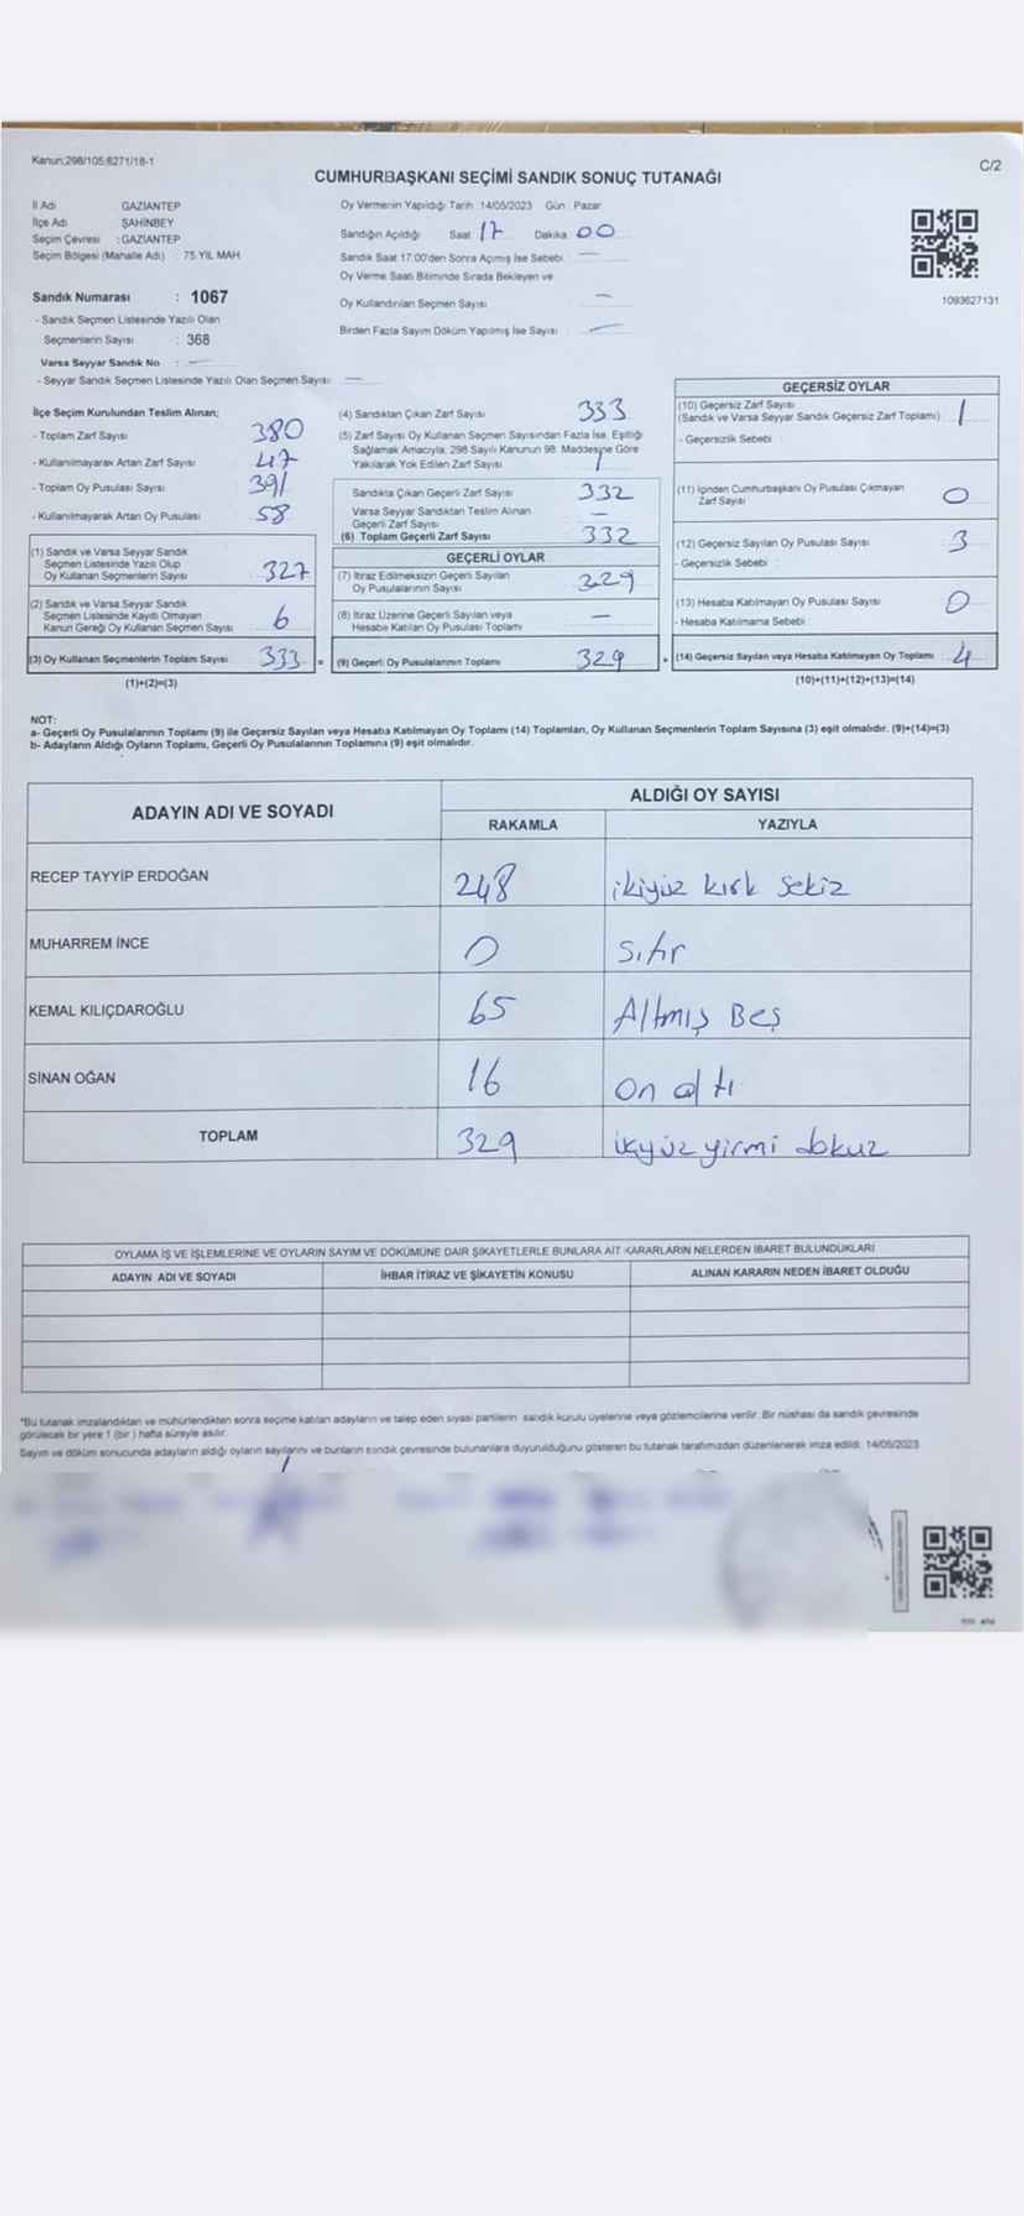 Kanun:298/105:6271/18-1
C/2
CUMHURBAŞKANI SEÇİMİ SANDIK SONUÇ TUTANAĞI
İl Adı GAZİANTEP
İlçe Adı ŞAHİNBEY
Seçim Çevresi : GAZİANTEP
Seçim Bölgesi (Mahalle Adı) 75.YIL MAH
Sandık Numarası : 1067
- Sandık Seçmen Listesinde Yazılı Olan
Seçmenlerin Sayısı : 368
Varsa Seyyar Sandık No : —
- Seyyar Sandık Seçmen Listesinde Yazılı Olan Seçmen Sayısı —
Oy Vermenin Yapıldığı Tarih 14/05/2023 Gün : Pazar
Sandığın Açıldığı Saat 17 Dakika 00
Sandık Saat 17:00'den Sonra Açımış İse Sebebi —
Oy Verme Saati Bitiminde Sırada Bekleyen ve
Oy Kullandırılan Seçmen Sayısı —
Birden Fazla Sayım Döküm Yapılmış İse Sayısı —
1093627131
İlçe Seçim Kurulundan Teslim Alınan;
- Toplam Zarf Sayısı 380
- Kullanılmayarak Artan Zarf Sayısı 47
- Toplam Oy Pusulası Sayısı 391
- Kullanılmayarak Artan Oy Pusulası 58
(1) Sandık ve Varsa Seyyar Sandık
Seçmen Listesinde Yazılı Olup
Oy Kullanan Seçmenlerin Sayısı 327
(2) Sandık ve Varsa Seyyar Sandık
Seçmen Listesinde Kayıtlı Olmayan
Kanun Gereği Oy Kullanan Seçmen Sayısı 6
(3) Oy Kullanan Seçmenlerin Toplam Sayısı 333 =
(1)+(2)=(3)
(4) Sandıktan Çıkan Zarf Sayısı 333
(5) Zarf Sayısı Oy Kullanan Seçmen Sayısından Fazla İse, Eşitliği
Sağlamak Amacıyla; 298 Sayılı Kanunun 98. Maddesine Göre
Yakılarak Yok Edilen Zarf Sayısı
Sandıkta Çıkan Geçerli Zarf Sayısı 332
Varsa Seyyar Sandıktan Teslim Alınan
Geçerli Zarf Sayısı —
(6) Toplam Geçerli Zarf Sayısı 332
GEÇERLİ OYLAR
(7) İtiraz Edilmeksizin Geçerli Sayılan
Oy Pusulalarının Sayısı 329
(8) İtiraz Üzerine Geçerli Sayılan veya
Hesaba Katılan Oy Pusulası Toplamı —
(9) Geçerli Oy Pusulalarının Toplamı 329 +
GEÇERSİZ OYLAR
(10) Geçersiz Zarf Sayısı
(Sandık ve Varsa Seyyar Sandık Geçersiz Zarf Toplamı) 1
- Geçersizlik Sebebi
(11) İçinden Cumhurbaşkanı Oy Pusulası Çıkmayan
Zarf Sayısı 0
(12) Geçersiz Sayılan Oy Pusulası Sayısı 3
- Geçersizlik Sebebi :
(13) Hesaba Katılmayan Oy Pusulası Sayısı 0
- Hesaba Katılmama Sebebi :
(14) Geçersiz Sayılan veya Hesaba Katılmayan Oy Toplamı 4
(10)+(11)+(12)+(13)=(14)
NOT:
a- Geçerli Oy Pusulalarının Toplamı (9) ile Geçersiz Sayılan veya Hesaba Katılmayan Oy Toplamı (14) Toplamları, Oy Kullanan Seçmenlerin Toplam Sayısına (3) eşit olmalıdır. (9)+(14)=(3)
b- Adayların Aldığı Oyların Toplamı, Geçerli Oy Pusulalarının Toplamına (9) eşit olmalıdır.
ADAYIN ADI VE SOYADI
ALDIĞI OY SAYISI
RAKAMLA YAZIYLA
RECEP TAYYİP ERDOĞAN 248 ikiyüz kırk sekiz
MUHARREM İNCE 0 sıfır
KEMAL KILIÇDAROĞLU 65 Altmış Beş
SİNAN OĞAN 16 on altı
TOPLAM 329 ikyüz yirmi dokuz
OYLAMA İŞ VE İŞLEMLERİNE VE OYLARIN SAYIM VE DÖKÜMÜNE DAİR ŞİKAYETLERLE BUNLARA AİT KARARLARIN NELERDEN İBARET BULUNDUKLARI
ADAYIN ADI VE SOYADI İHBAR İTİRAZ VE ŞİKAYETİN KONUSU ALINAN KARARIN NEDEN İBARET OLDUĞU
*Bu tutanak imzalandıktan ve mühürlendikten sonra seçime katılan adayların ve talep eden siyasi partilerin sandık kurulu üyelerine veya gözlemcilerine verilir. Bir nüshası da sandık çevresinde
görülecek bir yere 1 (bir ) hafta süreyle asılır.
Sayım ve döküm sonucunda adayların aldığı oyların sayılarını ve bunların sandık çevresinde bulunanlara duyurulduğunu gösteren bu tutanak tarafımızdan düzenlenerek imza edildi. 14/05/2023